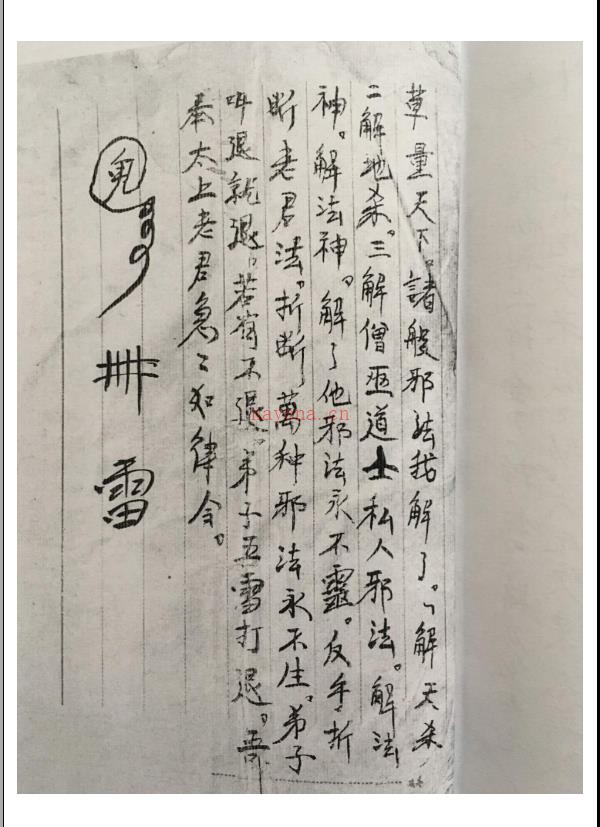 草量天下。諸般邪法我解了。一解天杀
二解地杀。三解僧巫道士私人邪法。解法
神。解法神。解了他邪法永不靈。反手折
断老君法。折断萬种邪法永不生。弟子
叫退就退。若有不退。弟子五雷打退。吾
奉太上老君急〻如律令。
鬼
雷
nayona.cn